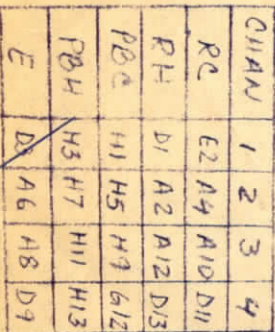 CHAN 1 2 3 4
RC E2 A4 A10 D11
RH D1 A2 A12 D13
PBC H1 H5 H9 G12
PBH H3 H7 H11 H13
E A6 A8 D9